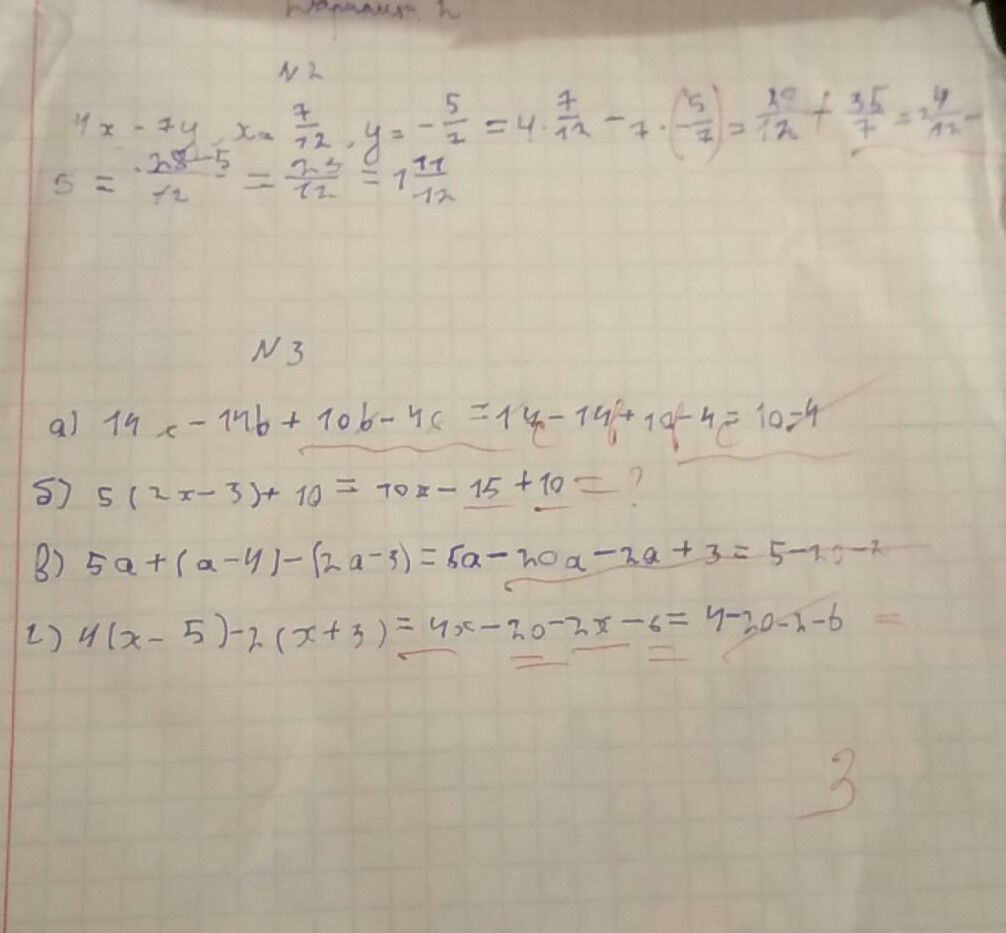 Вариант 2
N 2
4x - 7y, x = 7/12, y = - 5/7 = 4 · 7/12 - 7 · (- 5/7) = 28/12 + 35/7 =
5 = 28-5/12 = 23/12 = 1 11/12
N 3
а) 14 c - 14b + 10b - 4c = 14c - 14b + 10b - 4c = 10-4
б) 5 (2x - 3) + 10 = 10x - 15 + 10 = ?
в) 5a + (a - 4) - (2a - 3) = 5a - 20a - 2a + 3 = 5 - 20 - 2
г) 4(x - 5) - 2(x + 3) = 4x - 20 - 2x - 6 = 4 - 20 - 2 - 6 =
3